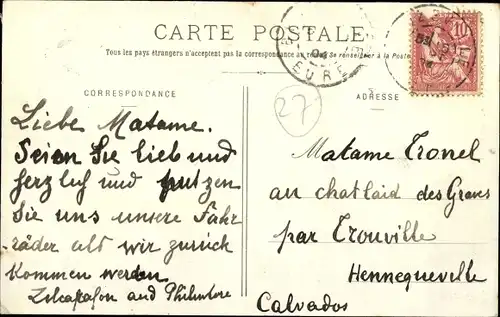 CARTE POSTALE
Tous les pays étrangers n'acceptent pas la correspondance au recto. Se renseigner à la Poste
EURE
10
CORRESPONDANCE
27
ADRESSE
Liebe Matame.
Seien Sie lieb und
herzlich und putzen
Sie uns unsere Fahr
räder als wir zurück
kommen werden
and
Matame Tronel
au chatlaid des Graves
par Trouville
Hennequeville
Calvados